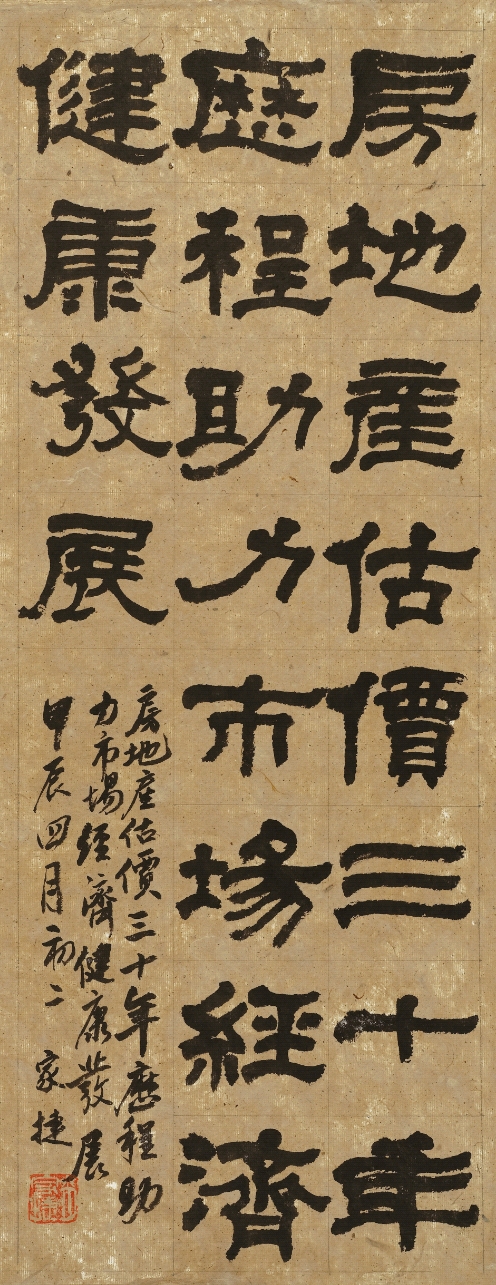 房地產估價三十年
歷程助力市場經濟
健康發展
房地產估價三十年歷程助
力市場經濟健康發展
甲辰四月初二 家捷